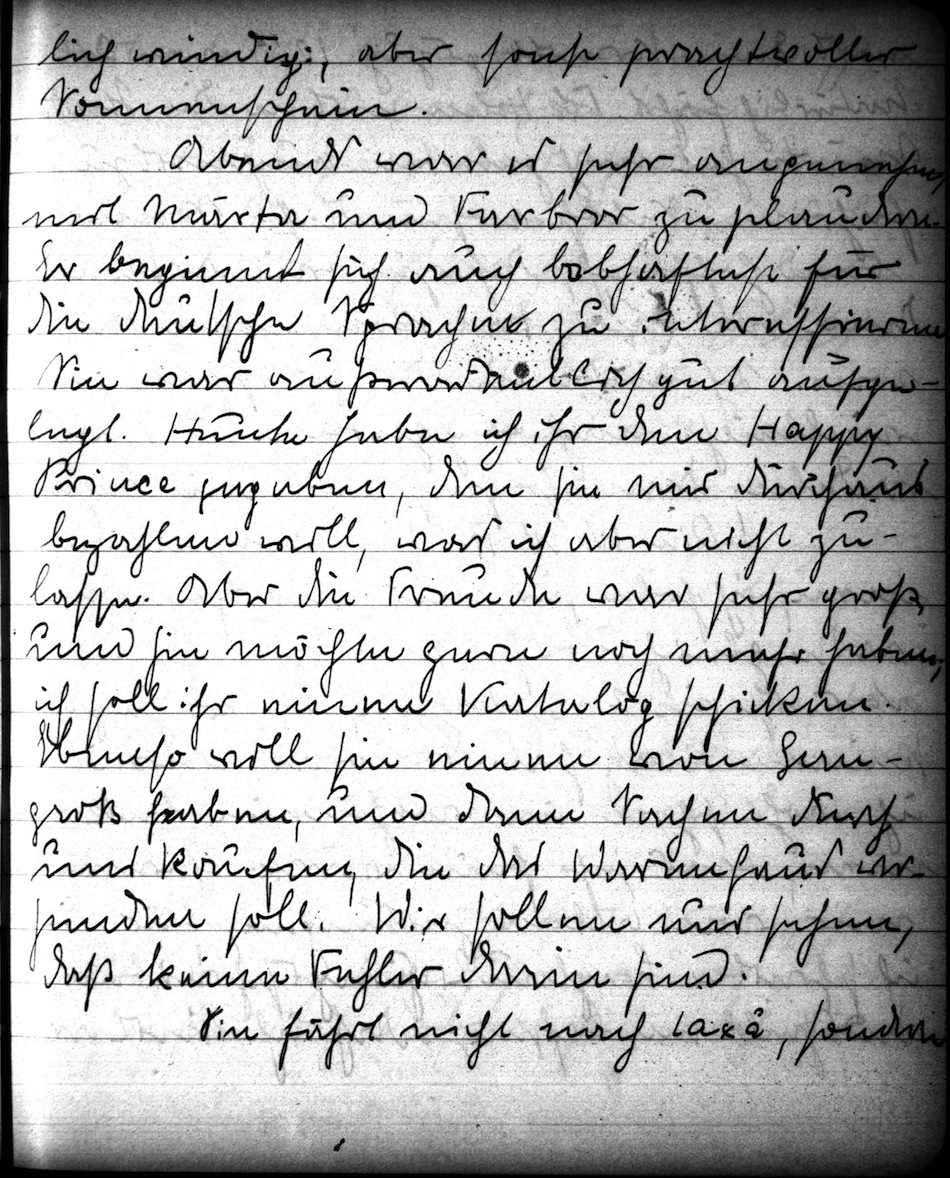 lich windig, aber sonst prachtvoller
Sonnenschein.
Abends war es sehr angenehm,
mit Märta und Farbror zu plaudern.
Er beginnt sich auch lebhaftest für
die deutsche Sprache zu interessieren
Sie war außerordentlich gut aufge-
legt. Heute habe ich ihr den Happy
Prince gegeben, den sie mir durchaus
bezahlen will, was ich aber nicht zu-
lasse. Aber die Freude war sehr groß,
und sie möchte gern noch mehr haben,
ich soll ihr einen Katalog schicken.
Ebenso will sie einen von Gern-
groß haben, und dann Sachen durch
uns kaufen, die das Warenhaus ver-
senden soll. Wir sollen nur sehen,
daß keine Fehler darin sind.
Sie fährt nicht nach Laxå, sondern